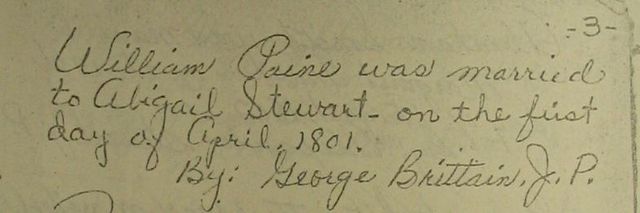 -3-
William Paine was married
to Abigail Stewart - on the first
day of April, 1801.
By: George Brittain, J. P.